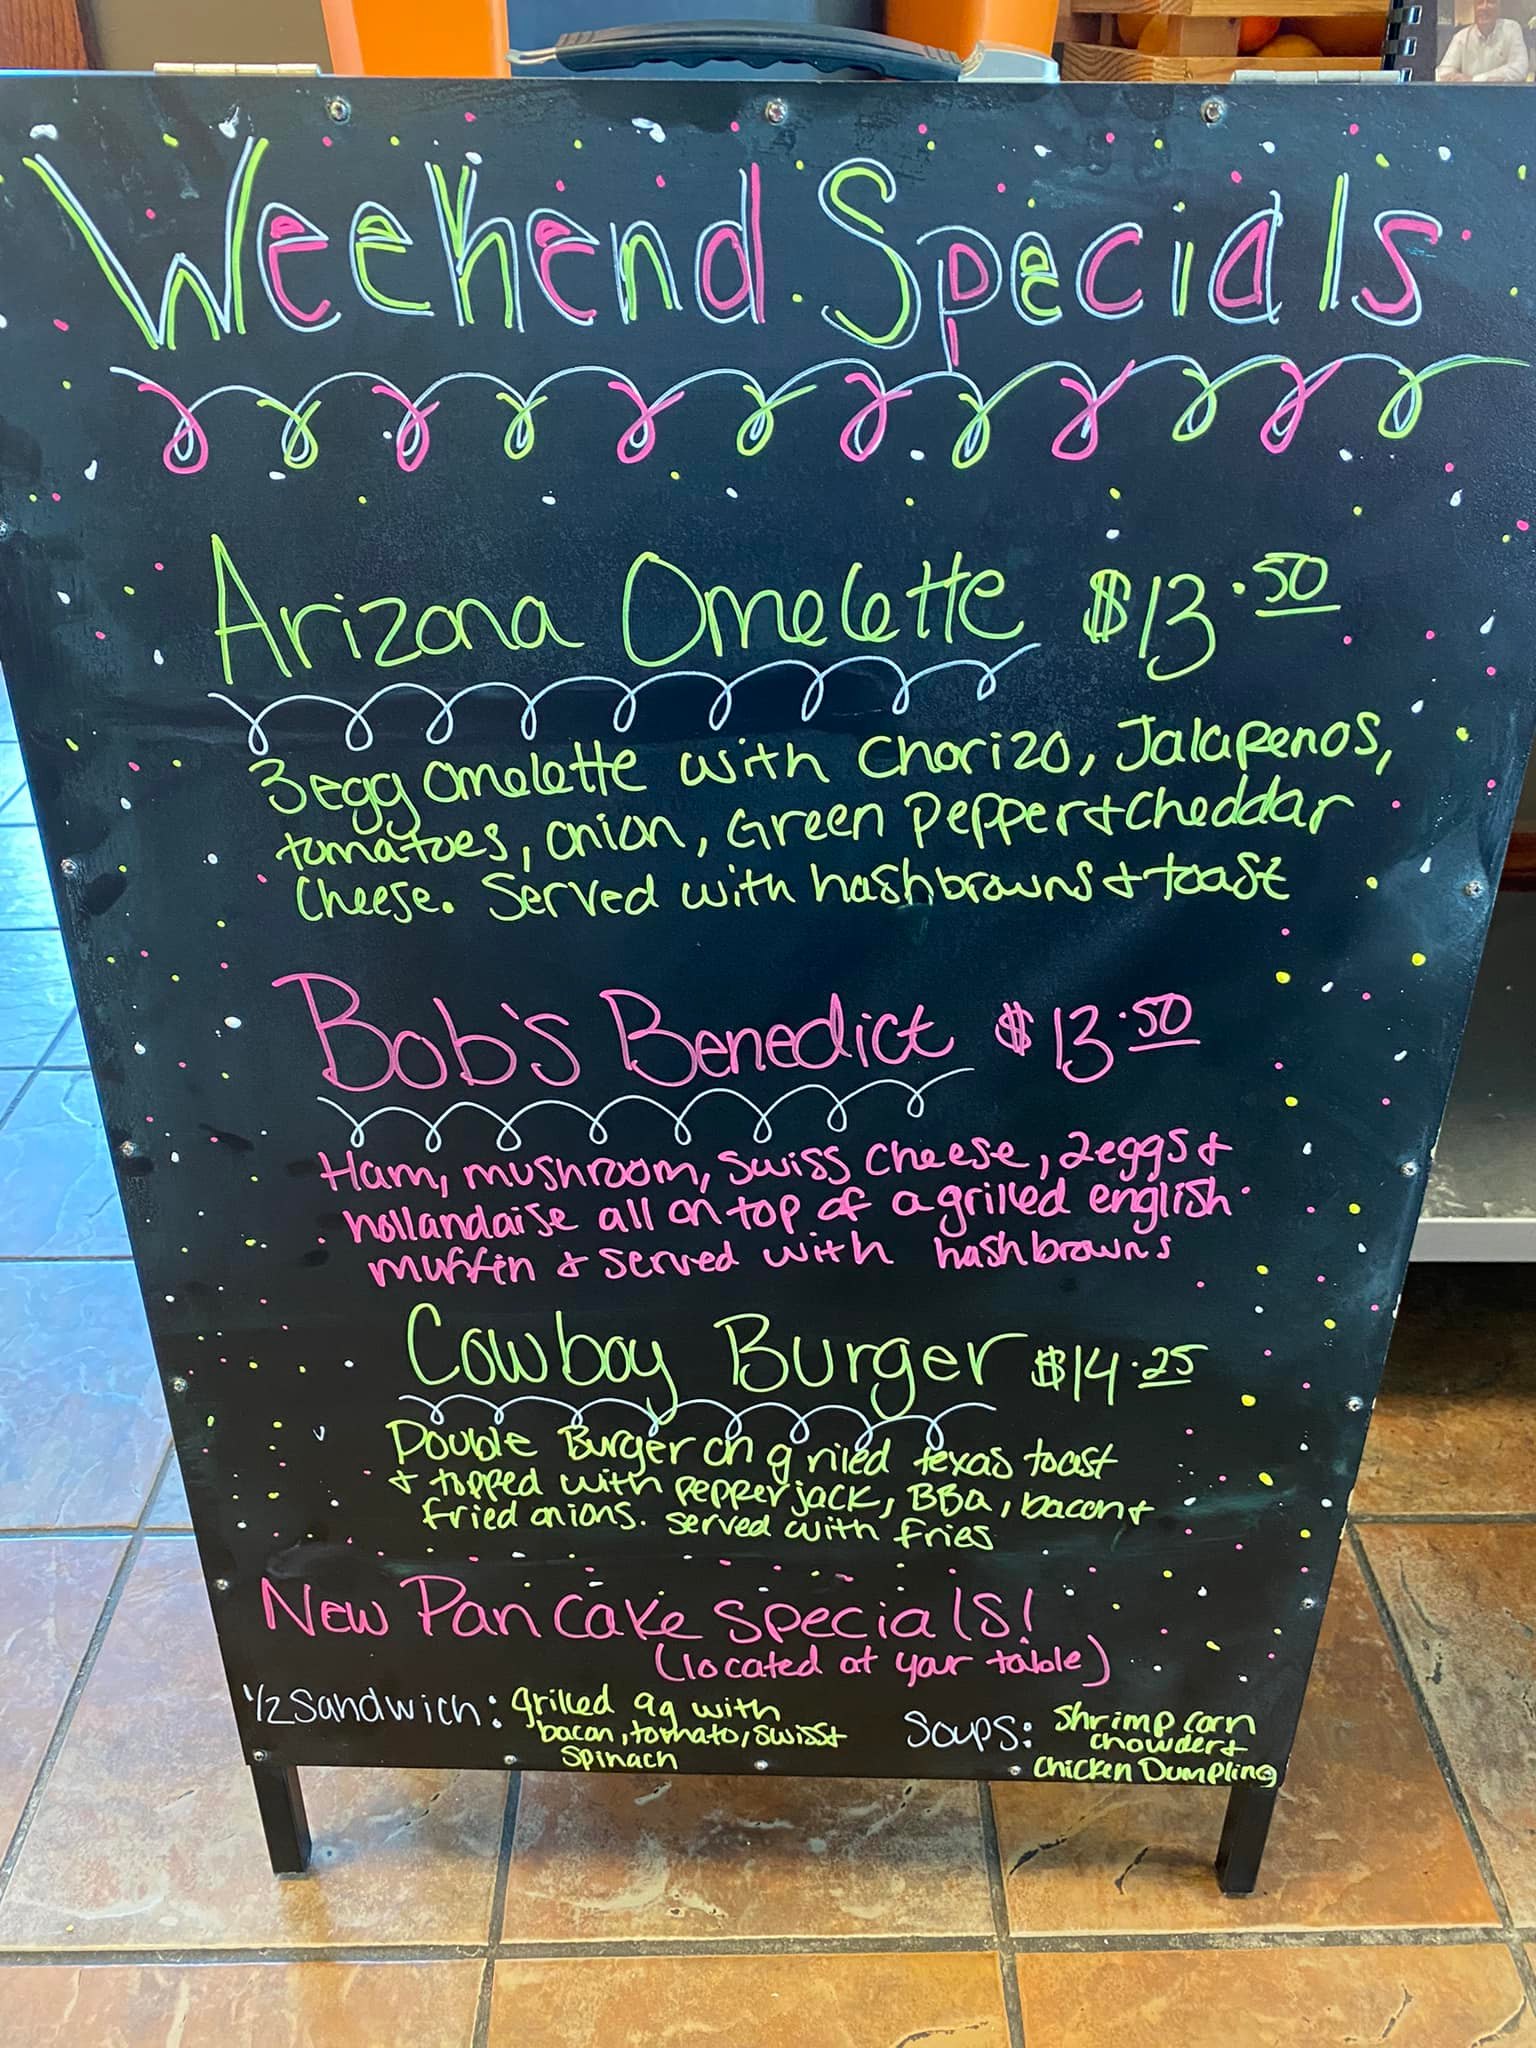 Weekend Specials
Arizona Omelette $13.50
3 egg omelette with Chorizo, Jalapenos,
tomatoes, onion, Green Pepper + Cheddar
Cheese. Served with hashbrowns + toast
Bob's Benedict $13.50
Ham, mushroom, swiss cheese, 2 eggs +
hollandaise all on top of a grilled english
muffin + served with hashbrowns
Cowboy Burger $14.25
Double Burger on grilled texas toast
+ topped with pepper jack, BBQ, bacon +
fried onions. served with fries
New Pancake Specials!
(located at your table)
1/2 Sandwich: grilled ag with
bacon, tomato, swiss +
spinach
Soups: Shrimp corn
chowder +
Chicken Dumpling